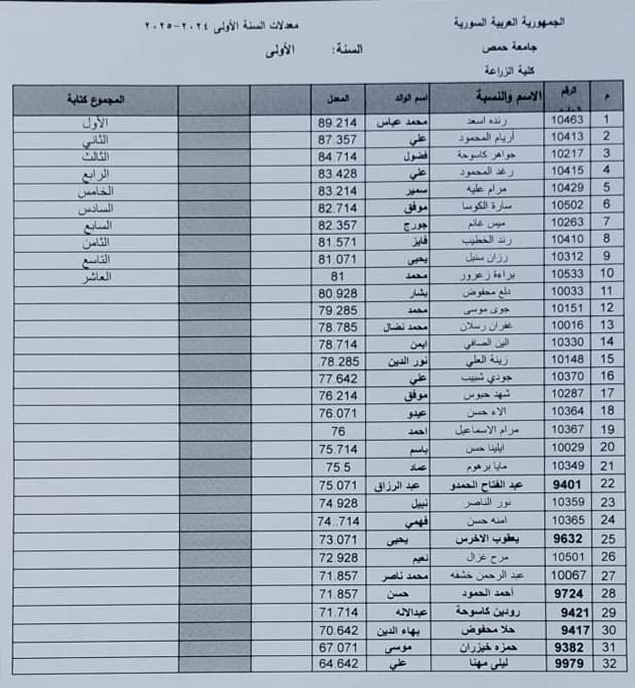 الجمهورية العربية السورية
معدلات السنة الأولى ٢٠٢٤-٢٠٢٥
جامعة حمص
السنة: الأولى
كلية الزراعة
م الرقم الاسم والنسبة اسم الوالد المعدل المجموع كتابة
1 10463 رنده اسعد محمد عباس 89.214 الأول
2 10413 أريام المحمود علي 87.357 الثاني
3 10217 جواهر كاسوحة فضول 84.714 الثالث
4 10415 رغد المحمود علي 83.428 الرابع
5 10429 مرام عليه سمير 83.214 الخامس
6 10502 سارة الكوسا موفق 82.714 السادس
7 10263 ميس غانم جورج 82.357 السابع
8 10410 رند الخطيب فايز 81.571 الثامن
9 10312 رزان سنبل يحيى 81.071 التاسع
10 10533 براءة زعرور محمد 81 العاشر
11 10033 دلع محفوض بشار 80.928
12 10151 جوى موسى محمد 79.285
13 10016 غفران رسلان محمد نضال 78.785
14 10330 الين الصافي ايمن 78.714
15 10148 زينة العلي نور الدين 78.285
16 10370 جودي شبيب علي 77.642
17 10287 شهد حبوس موفق 76.214
18 10364 الاء حسن عيدو 76.071
19 10367 مرام الاسماعيل احمد 76
20 10029 ايلينا حسن باسم 75.714
21 10349 مايا برهوم عماد 75.5
22 9401 عبد الفتاح الحمدو عبد الرزاق 75.071
23 10359 نور الناصر نبيل 74.928
24 10365 امنه حسن فهمي 74..714
25 9632 يعقوب الاخرس يحيى 73.071
26 10501 مرح غزال نعيم 72.928
27 10067 عبد الرحمن خشفه محمد ناصر 71.857
28 9724 أحمد الحمود حسن 71.857
29 9421 رودين كاسوحة عبدالاله 71.714
30 9417 حلا محفوض بهاء الدين 70.642
31 9382 حمزه خيزران موسى 67.071
32 9979 ليلى مهنا علي 64.642